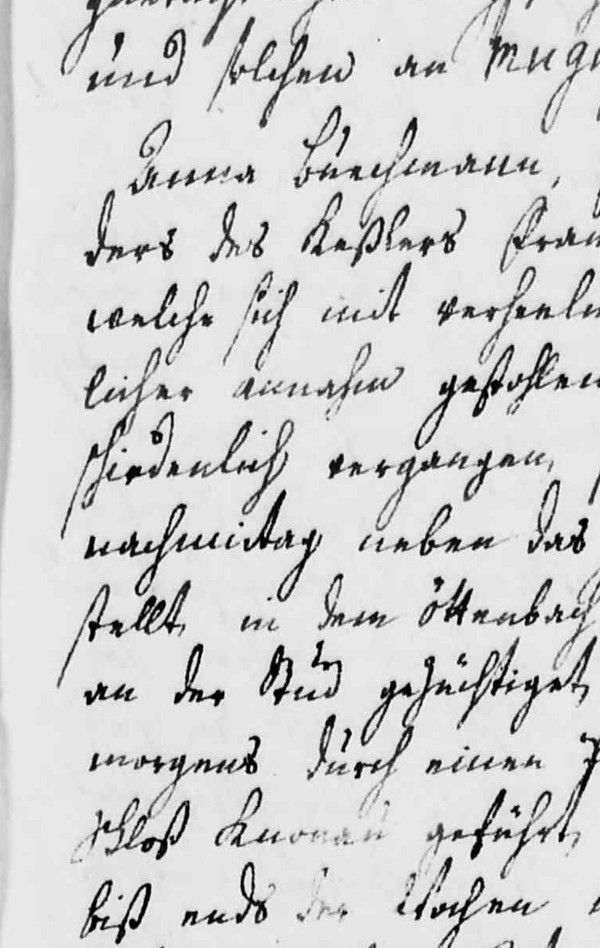 und solchen an
Anna Büechmann,
ders des Keßlers
welche sich mit
licher annahm gestohlen
schiedenlich vergangen,
nachmitag neben das
stellt, in dem Öttenbach
an der Stud gezüchtiget,
morgens durch einen
Schloß Knonau geführt,
biß ends der Wochen